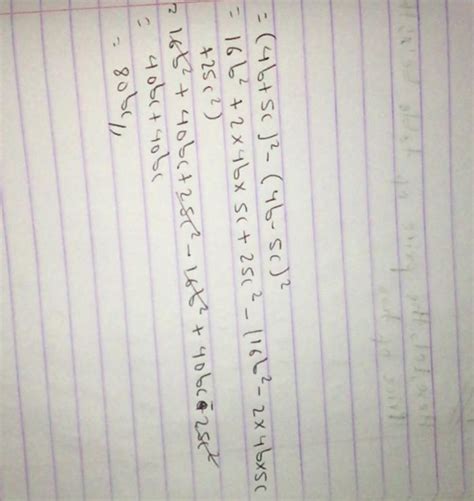 = (4b+5c)² - (4b-5c)²
= 16b² + 2×4b×5c + 25c² - (16b² - 2×4b×5c
+25c²)
= 16b² + 40bc + 25c² - 16b² + 40bc - 25c²
= 40bc + 40bc
= 80bc //